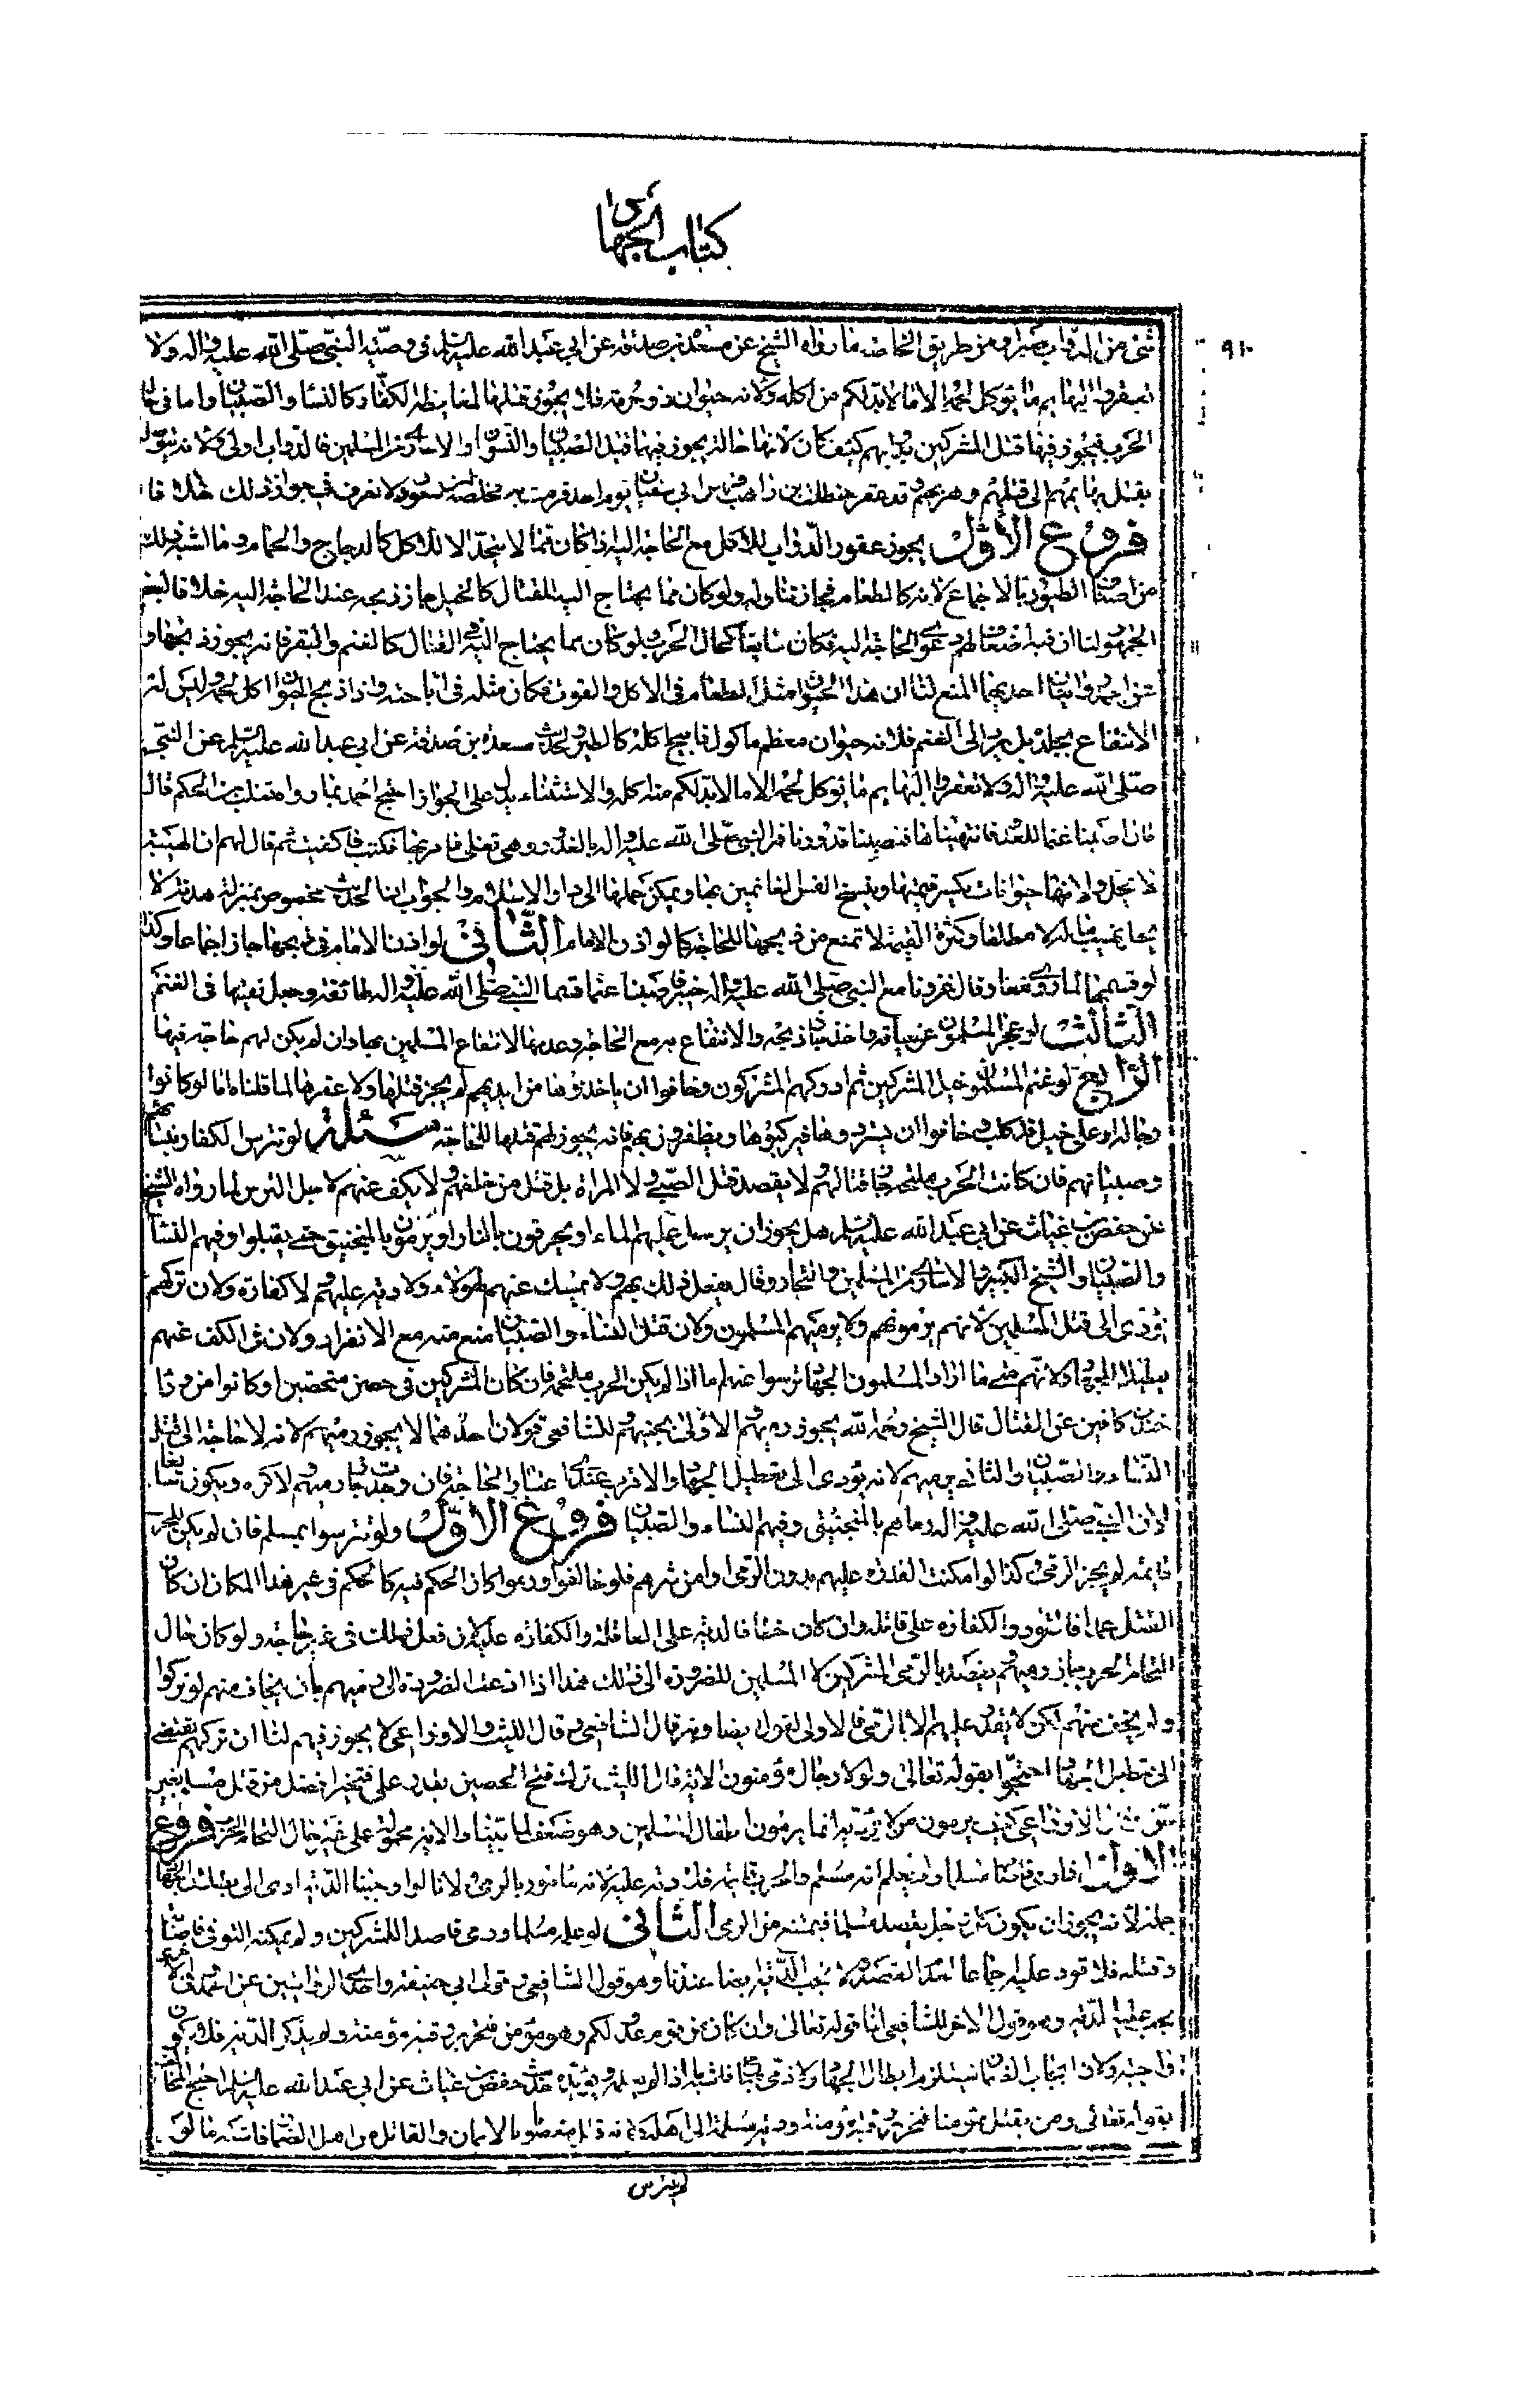 كتاب الجهاد
٩١٠
شئ من الدواب صبرا ومن طريق الخاصة ما رواه الشيخ عن مسعدة بن صدقة عن أبي عبد الله عليه السلم في وصية النبي صلى الله عليه وآله ولا
تعقروا البهايم ما يؤكل لحمه إلا ما لا بد لكم من أكله ولأنه حيوان ذو حرمة فلا يجوز قتلها لمغايظة الكفار كالنساء والصبيان وأما في حال
الحرب فيجوز فيها قتل المشركين بدوابهم كيف كان لأنها حالة يجوز فيها قتل الصبيان والنسوان والأسارى من المسلمين فالدواب أولى ولأنه يتوصل
بقتل بهايمهم إلى قتلهم وهزيمتهم وقد عقر حنظلة بن راهب فرس أبي سفيان يوم أحد فرمت به فخلصه ابن شعوب ولا نعرف في جواز ذلك خلافا
فروع الأول يجوز عقور الدواب للأكل مع الحاجة إليه إذا كان مما لا يتخذ إلا للأكل كالدجاج والحمام وما أشبه ذلك
من أصناف الطيور بالإجماع لأنه كالطعام فجاز تناوله ولو كان مما يحتاج إليه للقتال كالخيل جاز ذبحه عند الحاجة إليه خلافا لبعض
الجمهور لنا أن فيه ضعفا لهم دعوى الحاجة إليه فكان سايغا كحال الحرب ولو كان مما يحتاج إليه في القتال كالغنم والبقر فإنه يجوز ذبحها و
عن أحمد روايتان أحديهما المنع لنا أن هذا الحيوان مثل الطعام في الأكل والقوت فكان مثله في إباحته وإذا ذبح الحيوان أكل لحمه وليس له
الانتفاع بجلده بل يرد إلى الغنم فلأنه حيوان معظم مأكول فأبيح أكله كالطير ولحديث مسعدة بن صدقة عن أبي عبد الله عليه السلم عن النبي
صلى الله عليه وآله ولا تعقروا البهايم ما يؤكل لحمه إلا ما لا بد لكم من أكله والاستثناء يدل على الجواز احتج أحمد بما رواه ثعلبة بن الحكم قال
قال أصبنا غنما للعدو فانتهبناها فنصبنا قدورنا فمر النبي صلى الله عليه وآله بالقدور وهي تغلي فأمر بها فكبت فأكفئت ثم قال لهم أن النهبة
لا تحل ولأنها حيوانات يكسر قيمتها ويسمح أنفس الغانمين بها ويمكن حملها إلى دار الإسلام والجواب أن الحديث مخصوص بمنزلة
الثاني لو أذن الإمام في ذبحها جاز إجماعا وكذا
لو قسمها لما روي معاذ قال غزونا مع النبي صلى الله عليه وآله خيبر فأصبنا غنما فقسم النبي صلى الله عليه وآله طائفة وجعل بقيتها في الغنم
الثالث لو عجز المسلمون عن سياقه وأخذه جاز ذبحه والانتفاع به مع الحاجة وعدمها لانتفاع المسلمين بها وإن لم يكن لهم حاجة فيها
الرابع لو غنم المسلمون خيل المشركين ثم أدركهم المشركون وخافوا أن يأخذوها من أيديهم لم يجز قتلها ولا عقرها لما قلناه أما لو كانوا
رجالة أو على خيل قد كلت وخافوا أن يستردوها فيركبوها ويظفرون بهم فإنه يجوز لهم قتلها للحاجة مسئلة لو تترس الكفار بنسائهم
وصبيانهم فإن كانت الحرب ملتحمة جاز قتالهم ولا يقصد قتل الصبي ولا المرأة بل قتل من خلفهم ولا يكف عنهم لأجل الترس لما رواه الشيخ
عن حفص بن غياث عن أبي عبد الله عليه السلم هل يجوز أن يرسل عليهم الماء أو يحرقون بالنار أو يرمون بالمنجنيق حتى يقتلوا وفيهم النساء
والصبيان والشيخ الكبير والأسارى من المسلمين والتجار وقال يفعل ذلك بهم ولا يمسك عنهم لهؤلاء ولا دية عليهم ولا كفارة ولأن تركهم
يؤدي إلى قتل المسلمين لأنهم يرمونهم ولا يرميهم المسلمون ولأن قتل النساء والصبيان منع منه مع الانفراد ولأن في الكف عنهم
تعطيلا للجهاد لأنهم متى ما أراد المسلمون الجهاد تترسوا عنهم أما إذا لم يكن الحرب ملتحمة فإن كان المشركين في حصن متحصنين أو كانوا من وراء
خندق كافين عن القتال قال الشيخ رحمه الله يجوز رميهم والأولى تجنبهم وللشافعي قولان أحدهما لا يجوز رميهم لأنه لا حاجة إلى قتل
النساء والصبيان والثاني يرميهم لأنه يؤدي إلى تعطيل الجهاد والأقرب عندي اعتبار الحاجة فإن وجدت جاز رميهم وإلا كره ويكون سايغا
لأن النبي صلى الله عليه وآله رماهم بالمنجنيق وفيهم النساء والصبيان فروع الأول ولو تترسوا بمسلم فإن لم يكن الحرب
قايمة لم يجز الرمي وكذا لو أمكنت القدرة عليهم بدون الرمي أو أمن شرهم فلو خالفوا ورموا كان الحكم فيه كالحكم في غير هذا المكان إن كان
القتل عمدا فالقود والكفارة على قاتله وإن كان خطأ فالدية على العاقلة والكفارة عليه لأن فعل ذلك في غير حاجة ولو كان حال
التحام الحرب جاز رميهم ويقصد بالرمي المشركين لا المسلمين للضرورة إلى ذلك هذا إذا دعت الضرورة إلى رميهم بأن يخاف منهم لو تركوا
ولو لم يخف منهم لكن لا يقدر عليهم إلا بالرمي فالأولى القول أيضا وبه قال الشافعي وقال الليث والأوزاعي لا يجوز رميهم لنا أن تركهم يفضي
إلى تعطيل الجهاد احتجوا بقوله تعالى ولولا رجال مؤمنون الآية قال الليث ترك فتح الحصين يقدر على فتحه أفضل من قتل مسلم بغير
حق وقال الأوزاعي كيف يرمون من لا يرونه إنما يرمون أطفال المسلمين وهو ضعف لما بينا والآية محمولة على غير حال التحام الحرب فروع
الأول إذا رمى فأصاب مسلما ولم يعلم أنه مسلم والحرب قايمة فلا دية عليه لأنه مأمور بالرمي ولأنا لو أوجبنا الدية أدى إلى بطلان الجهاد
جملة لأنه يجوز أن يكون كل رجل يقصده مسلما فيمتنع من الرمي الثاني لو علم مسلما ورمى قاصدا للمشركين ولم يمكنه التوقي فأصابه
وقتله فلا قود عليه إجماعا لعدم القصد ولا تجب الدية أيضا عندنا وهو قول الشافعي وقول أبي حنيفة وإحدى الروايتين عن أحمد وفي الأخرى
يجب عليه الدية وهو قول الآخر للشافعي لنا قوله تعالى وإن كان من قوم عدو لكم وهو مؤمن فتحرير رقبة مؤمنة ولم يذكر الدية فلا يكون
واجبة ولأن إيجاب الضمان يستلزم إبطال الجهاد ولأنه رمي مباح فأشبه إذا لم يعلم ويؤيده حديث حفص بن غياث عن أبي عبد الله عليه السلم احتج المخالف
بقوله تعالى ومن يقتل مؤمنا فتحرير رقبة مؤمنة ودية مسلمة إلى أهله ولأنه قتل معصوما بالإيمان والقاتل من أهل الضمان فأشبه ما لو
لم يتترس